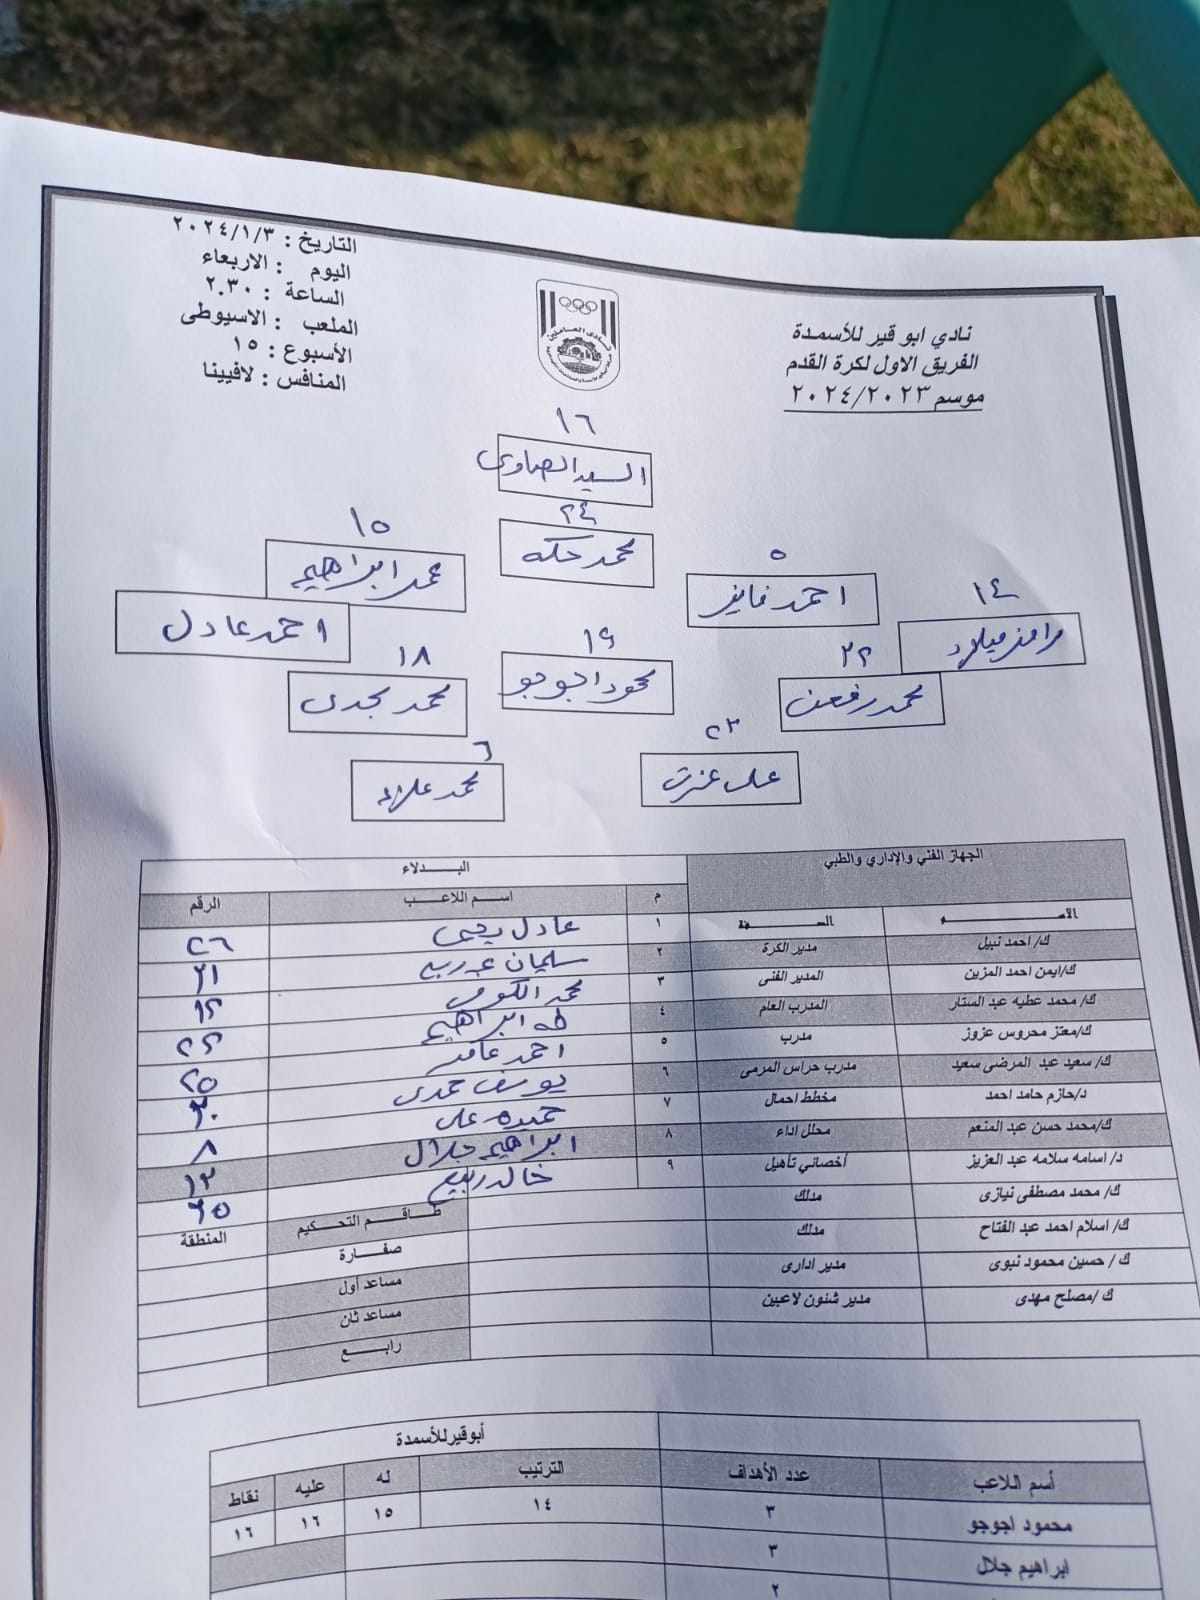 نادي ابو قير للأسمدة
الفريق الاول لكرة القدم
موسم ٢٠٢٤/٢٠٢٣
التاريخ : ٢٠٢٤/١/٣
اليوم : الاربعاء
الساعة : ٢.٣٠
الملعب : الاسيوطى
الأسبوع : ١٥
المنافس : لافيينا
١٦
السيد الصاوى
٢٤
محمد حكه
١٥
محمد ابراهيم
٥
احمد فايز
١٤
رامز ميلاد
احمد عادل
١٩
محمود اجوجو
١٨
محمد مجدى
٢٢
محمد رفعت
٢٣
على عزت
٦
محمد علاء
الجهاز الفني والإداري والطبي
البـــدلاء
م اســم اللاعــب الرقم
الاســـم الصـــفة
١ عادل يحيى ٢٦
ك/ احمد نبيل مدير الكرة
٢ سليمان ٢١
ك/ايمن احمد المزين المدير الفنى
٣ محمد الكومى
ك/ محمد عطيه عبد الستار المدرب العام
٤ طه ابراهيم ٢٩
ك/معتز محروس عزوز مدرب
٥ احمد عامر ٢٥
ك/ سعيد عبد المرضى سعيد مدرب حراس المرمى
٦ يوسف حمدى ٣٠
د/حازم حامد احمد مخطط احمال
٧ حميده على ٨
ك/محمد حسن عبد المنعم محلل اداء
٨ ابراهيم جلال ١٣
د/ اسامه سلامه عبد العزيز أخصائي تأهيل
٩ خالد ربيع
ك/ محمد مصطفى نيازى مدلك
طـــاقـــم التحـــكيم المنطقة
ك/ اسلام احمد عبد الفتاح مدلك
صفـــارة
ك / حسين محمود نبوى مدير ادارى
مساعد أول
ك /مصلح مهدى مدير شنون لاعبين
مساعد ثان
رابـــع
أبوقيرللأسمدة
أسم اللاعب عدد الأهداف الترتيب له عليه نقاط
محمود اجوجو ٣ ١٤ ١٥ ١٦ ١٦
ابراهيم جلال ٣
٢